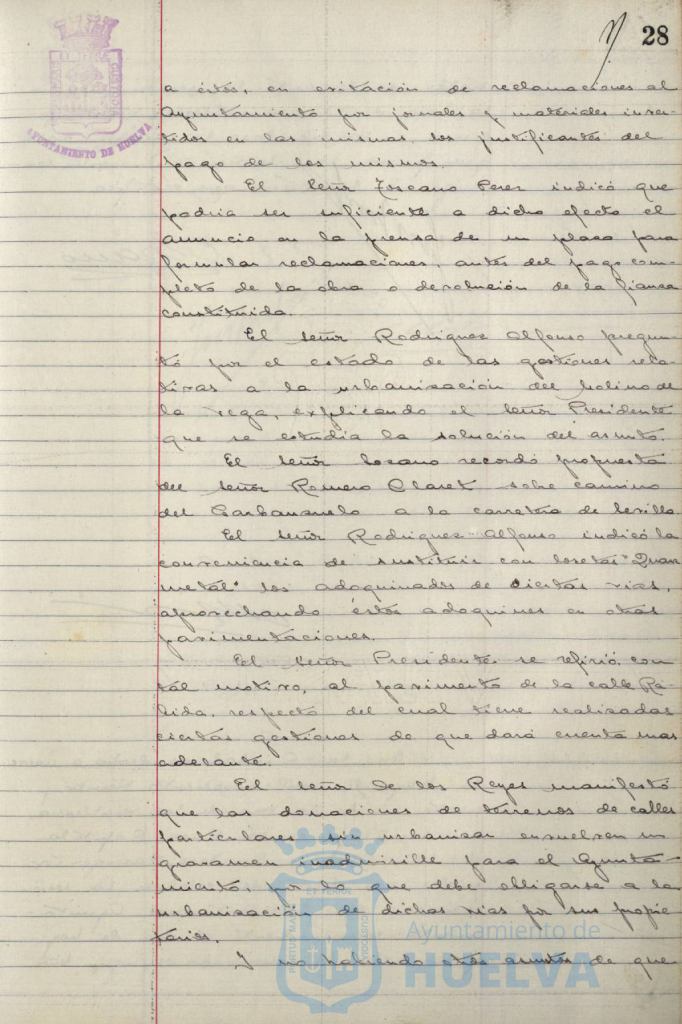 28
AYUNTAMIENTO DE HUELVA
a éstos, en evitación de reclamaciones al
Ayuntamiento por jornales y materiales inver-
tidos en las mismas, los justificantes del
pago de los mismos.
El Señor Toscano Perez indicó que
podria ser suficiente a dicho efecto el
anuncio en la prensa de un plazo para
formular reclamaciones, antes del pago com-
pleto de la obra o devolución de la fianza
constituida.
El señor Rodriguez Alfonso pregun-
tó por el estado de las gestiones rela-
tivas a la urbanización del Molino de
la Vega, explicando el Señor Presidente
que se estudia la solución del asunto.
El señor Lozano recordó propuesta
del señor Romero Claret sobre camino
del Garbanzuelo a la carretera de Sevilla.
El señor Rodriguez Alfonso indicó la
conveniencia de sustituir con losetas "Quar
metal" los adoquinados de ciertas vias,
aprovechando éstos adoquines en otras
pavimentaciones.
El Señor Presidente se refirió, con
tal motivo, al pavimento de la calle Rá-
bida, respecto del cual tiene realizadas
ciertas gestiones de que dará cuenta mas
adelante.
El señor de los Reyes manifestó
que las donaciones de terrenos de calles
particulares sin urbanizar envuelven un
gravamen inadmisible para el Ayunta-
miento, por lo que debe obligarse a la
urbanización de dichas vias por sus propie
tarios.
Y no habiendo otros asuntos de que
Ayuntamiento de
HUELVA